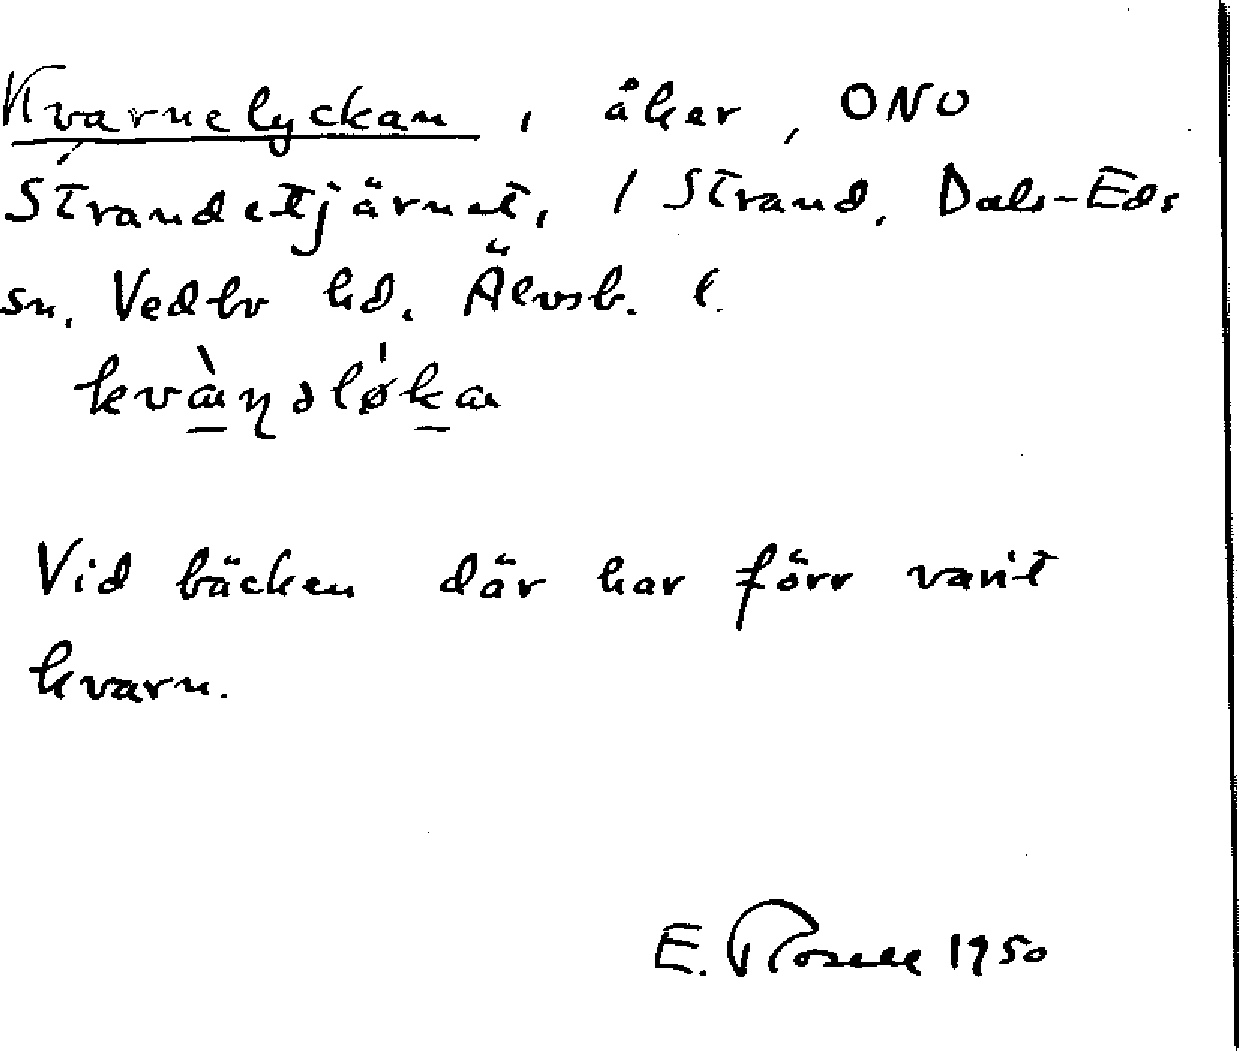 Kvarnelyckan, åker, ONO
Strandetjärnet, 1 Strand, Dals-Eds
sn, Vedbo hd, Älvsb. l.
kvàṇəløka
Vid bäcken där har förr varit
kvarn.
E. Rosell 1950